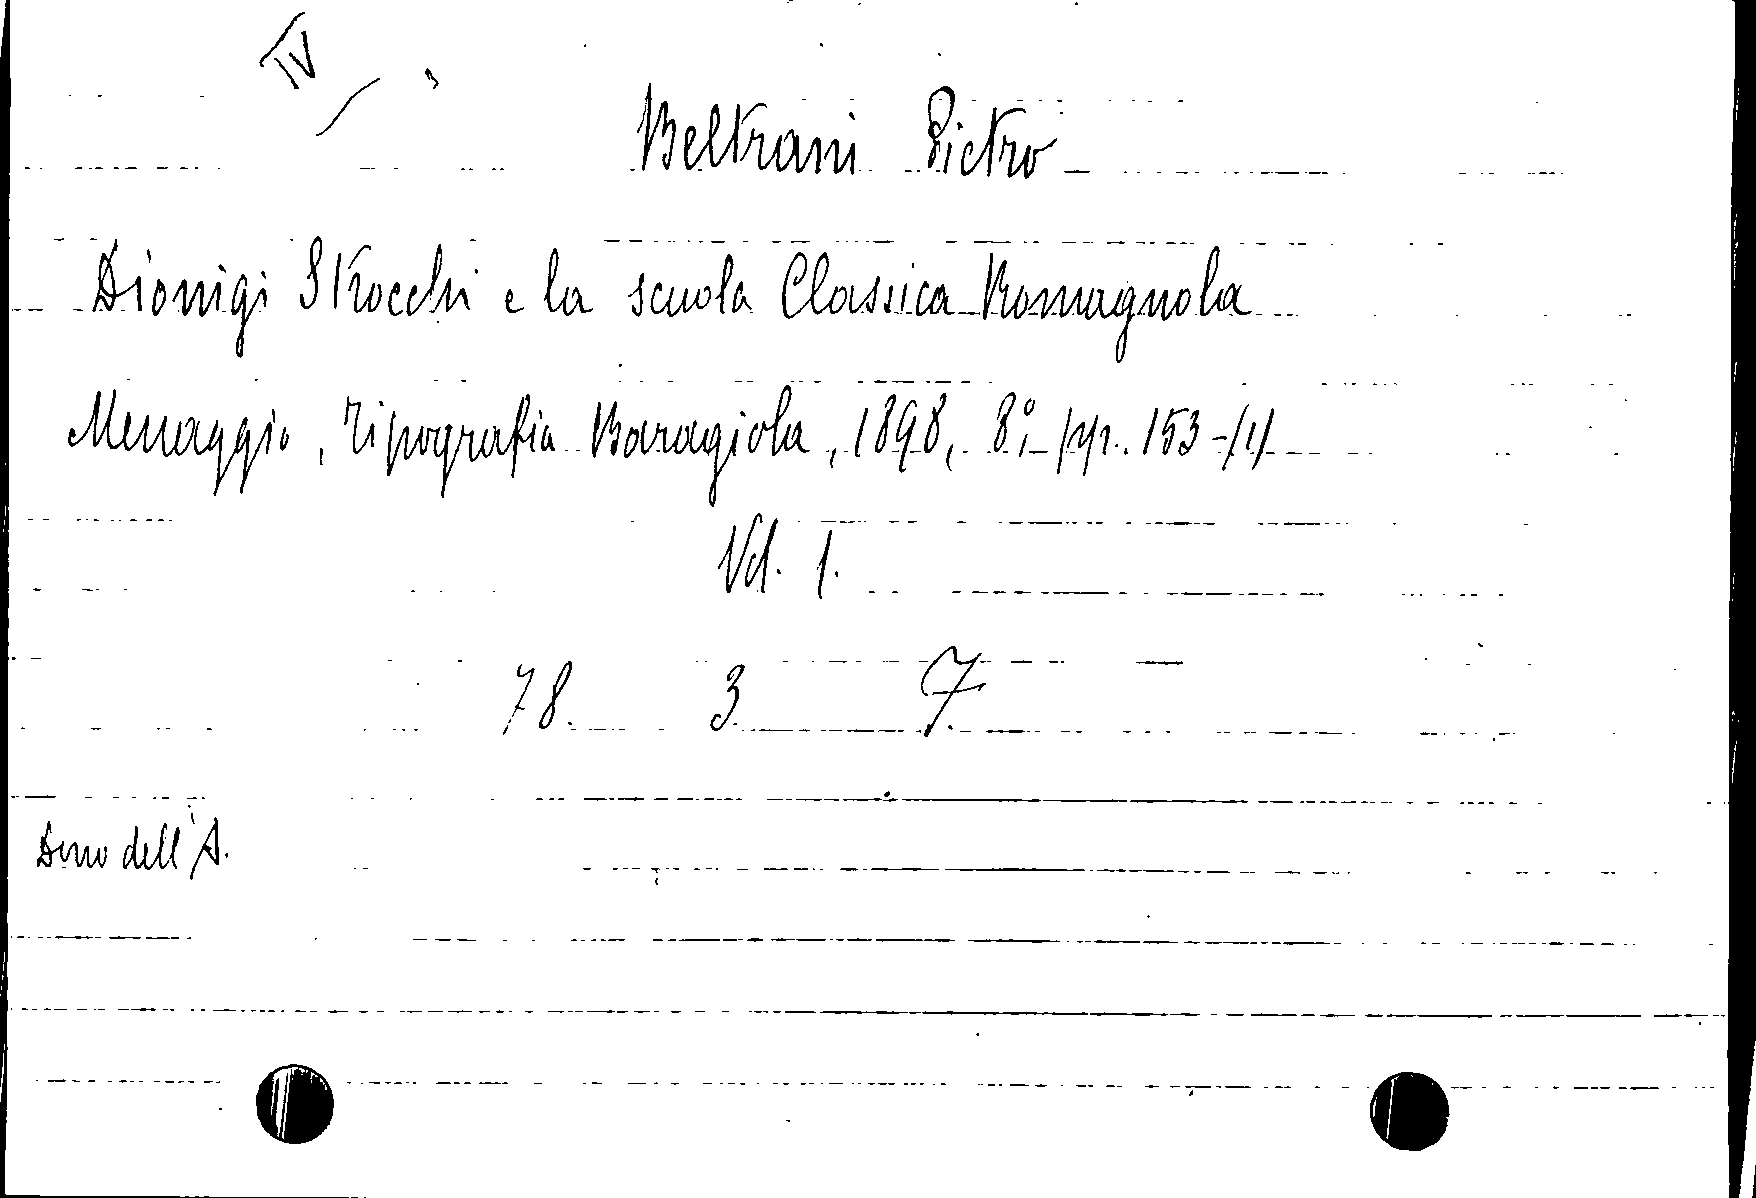 IV
Beltrani Pietro
Dionigi Strocchi e la scuola Classica Romagnola
Menaggio, Tipografia Baragiola, 1898, 8º, pp. 153-(1)
Vol. 1.
78. 3 7.
Dono dell'A.